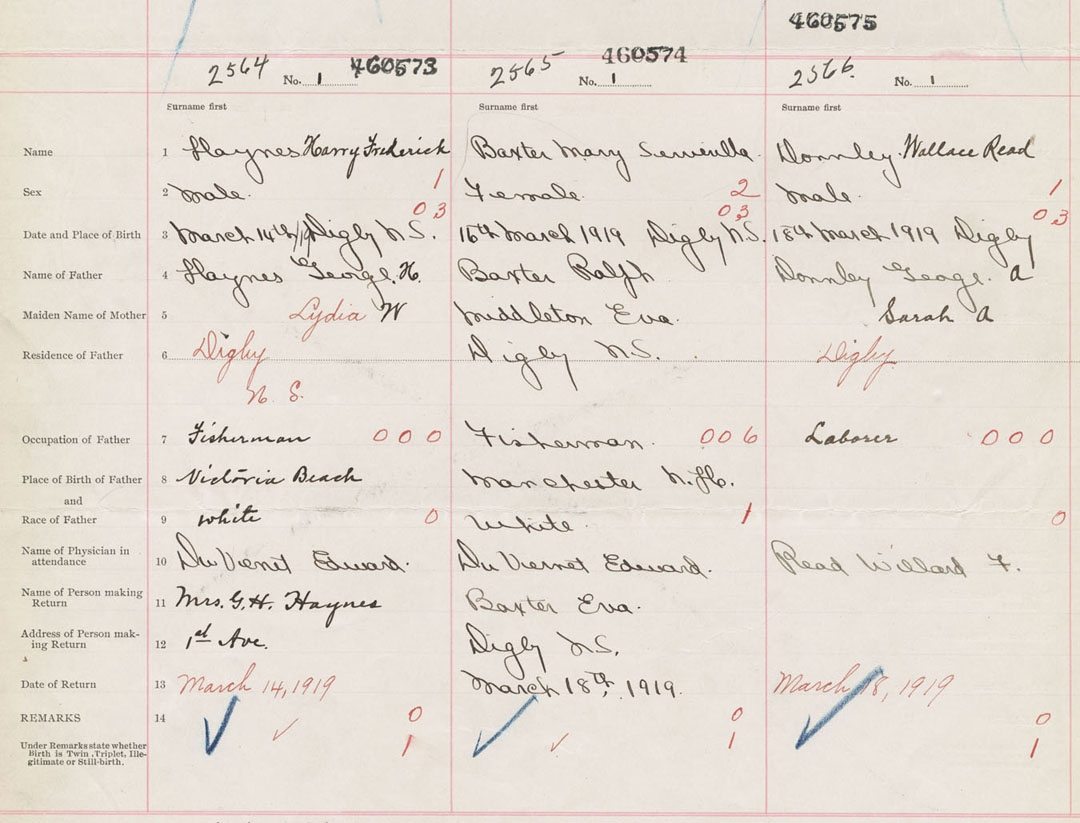 460575
2564 No. 1 460573 2565 460574 No. 1 2566 No. 1
Surname first Surname first Surname first
Name 1 Haynes Harry Frederick Baxter Mary Donnley Wallace Read
Sex 2 Male. 1 Female. 2 Male. 1
03 03 03
Date and Place of Birth 3 March 14th/19 Digby N.S. 16th March 1919 Digby N.S. 18th March 1919 Digby
Name of Father 4 Haynes George. H. Baxter Ralph Donnley George. A
Maiden Name of Mother 5 Lydia W Middleton Eva. Sarah A
Residence of Father 6 Digby Digby N.S. Digby
N. S.
Occupation of Father 7 Fisherman 000 Fisherman. 006 Laborer 000
Place of Birth of Father 8 Victoria Beach Manchester N.H.
and
Race of Father 9 white 0 White. 1 0
Name of Physician in
attendance 10 Du Vernet Edward. Du Vernet Edward. Read Willard F.
Name of Person making
Return 11 Mrs. G. H. Haynes Baxter Eva.
Address of Person mak-
ing Return 12 1st Ave. Digby N.S.
Date of Return 13 March 14, 1919 March 18th, 1919. March 18, 1919
REMARKS 14 0 0 0
Under Remarks state whether
Birth is Twin, Triplet, Ille-
gitimate or Still-birth. 1 1 1